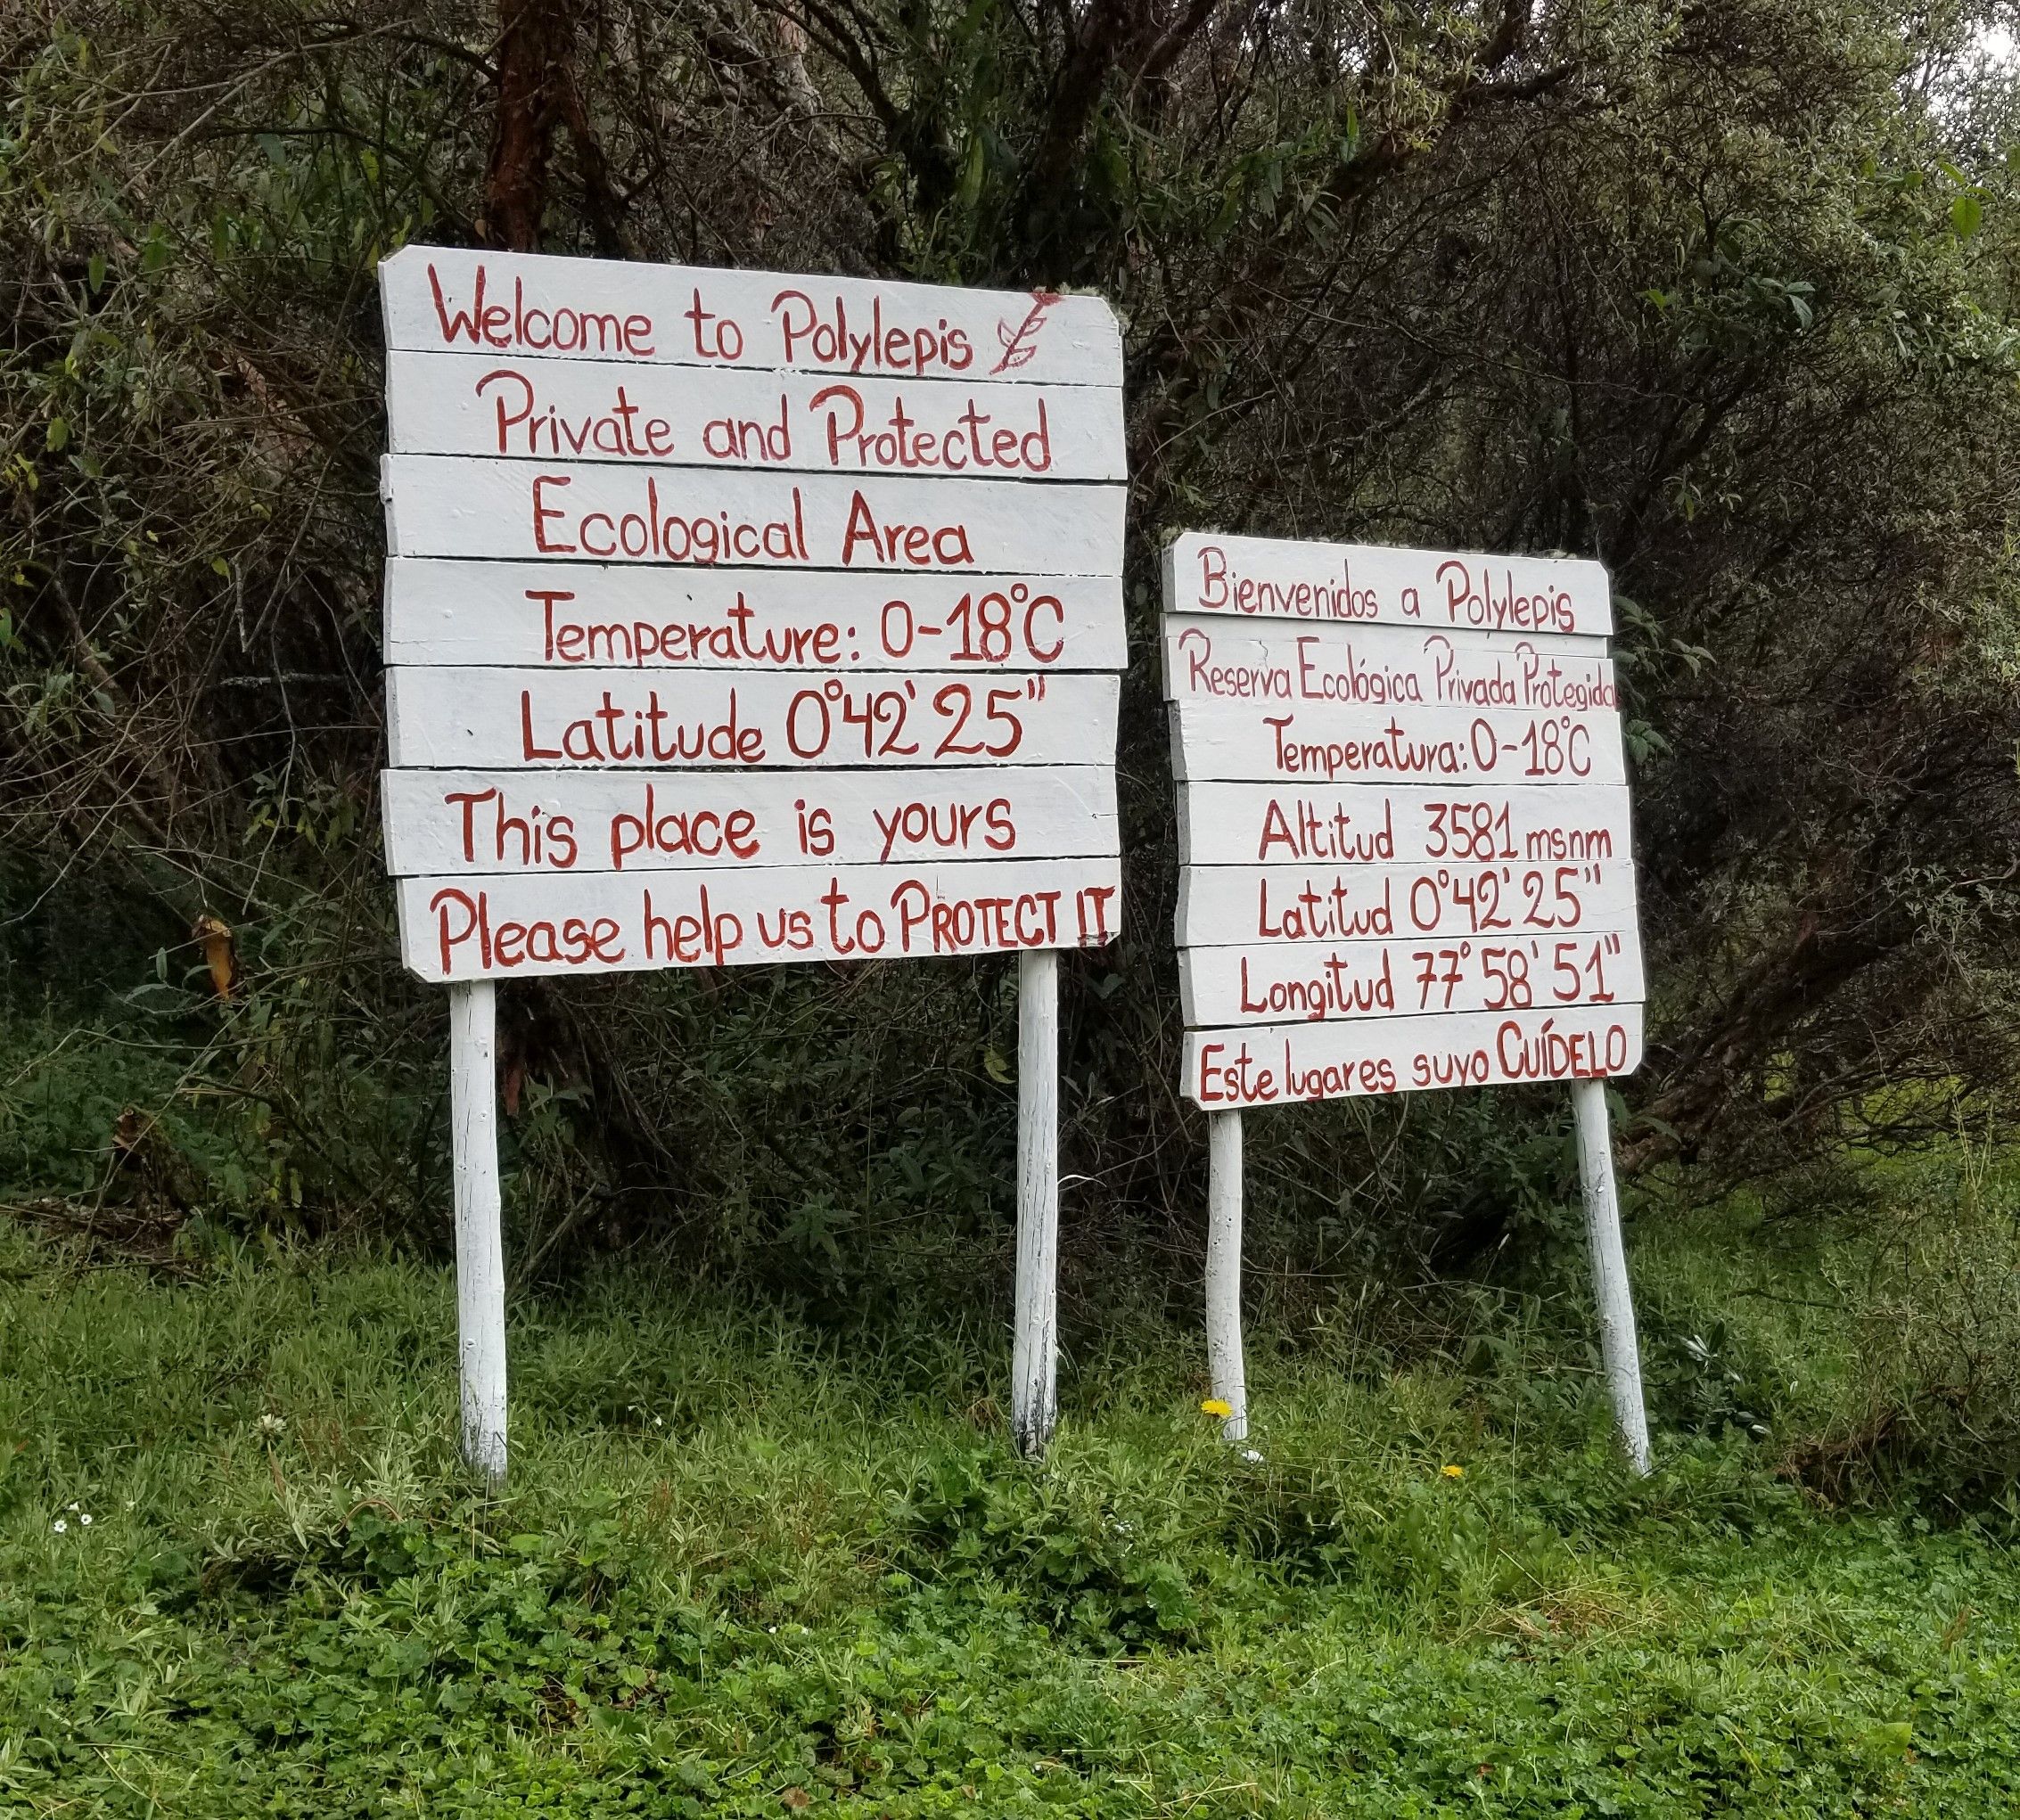 Welcome to Polylepis
Private and Protected
Ecological Area
Temperature: 0-18°C
Latitude 0°42'25"
This place is yours
Please help us to PROTECT IT
Bienvenidos a Polylepis
Reserva Ecológica Privada Protegida
Temperatura: 0-18°C
Altitud 3581 msnm
Latitud 0°42'25"
Longitud 77°58'51"
Este lugar es suyo CUÍDELO